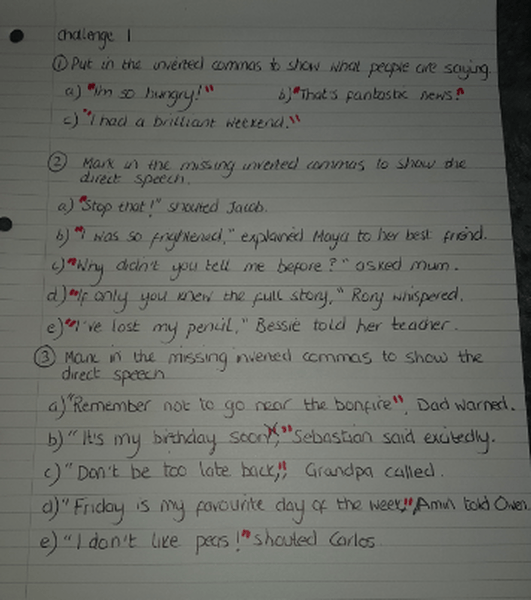 Challenge 1
① Put in the inverted commas to show what people are saying.
a) "I'm so hungry!" b) "That's fantastic news!"
c) "I had a brilliant weekend."
② Mark in the missing inverted commas to show the
direct speech.
a) "Stop that!" shouted Jacob.
b) "I was so frightened," explained Maya to her best friend.
c) "Why didn't you tell me before?" asked mum.
d) "If only you knew the full story," Rory whispered.
e) "I've lost my pencil," Bessie told her teacher.
③ Mark in the missing inverted commas to show the
direct speech
a) "Remember not to go near the bonfire", Dad warned.
b) "It's my birthday soon," Sebastian said excitedly.
c) "Don't be too late back," Grandpa called.
d) "Friday is my favourite day of the week," Amin told Owen.
e) "I don't like peas!" shouted Carlos